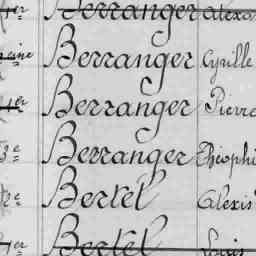 1er Berranger Alexa
eine Berranger Cyrille
1er Berranger Pierre
3e Berranger Théophi
2e Bertel Alexis
1er Bertel Louis